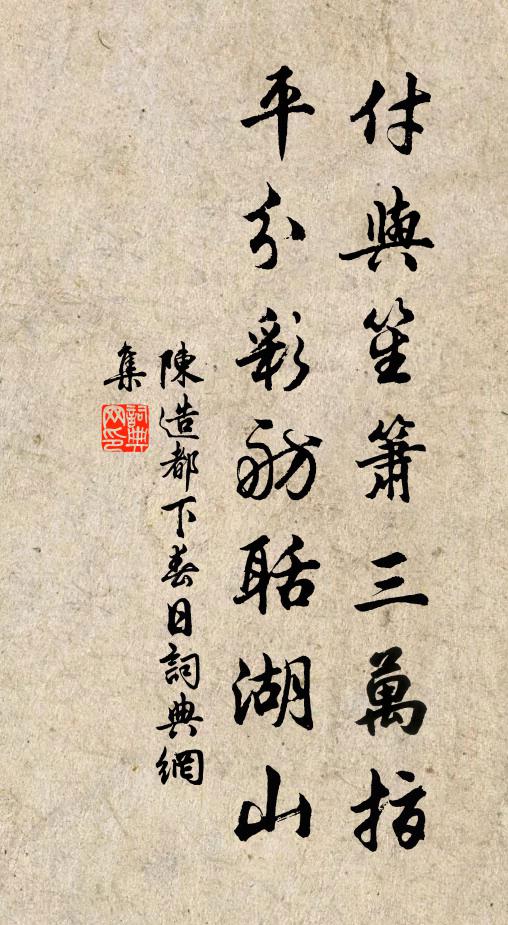 付與笙簫三萬指
平分彩舫聒湖山
陳造都下春日詞典網
集
詞典網印